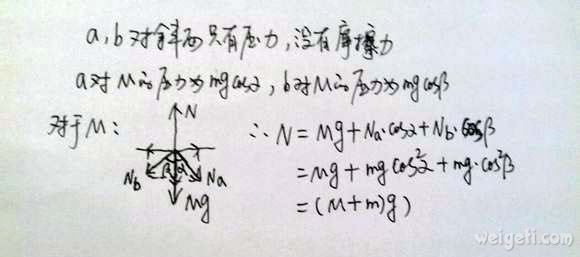 a,b对斜面只有压力,没有摩擦力
a对M的压力为mgcosα,b对M的压力为mgcosβ
对于M:
N
Nb β α Na
Mg
∴ N = Mg+Na·cosα+Nb·cosβ
=Mg+mgcos²α+mg·cos²β
=(M+m)g)
weigeti.com